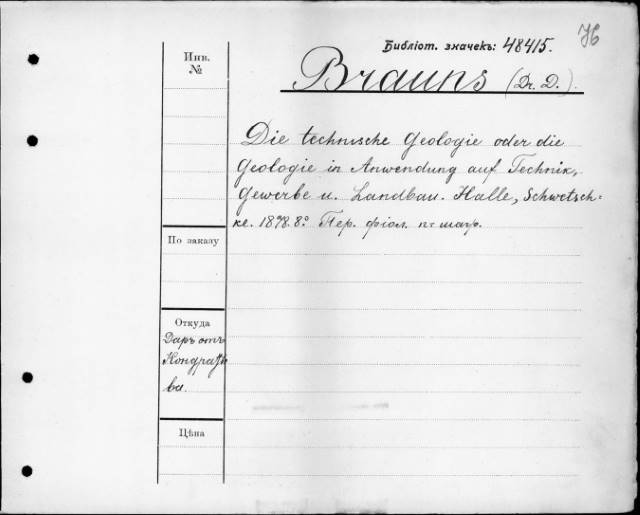 Библіот. значекъ: 48415.
Инв.
№
Brauns (Dr. D.).
Die technische Geologie oder die
Geologie in Anwendung auf Technik,
Gewerbe u. Landbau. Halle, Schwetsch-
ke. 1878. 8º. Пер.
По заказу
Откуда
Даръ отъ
Цѣна